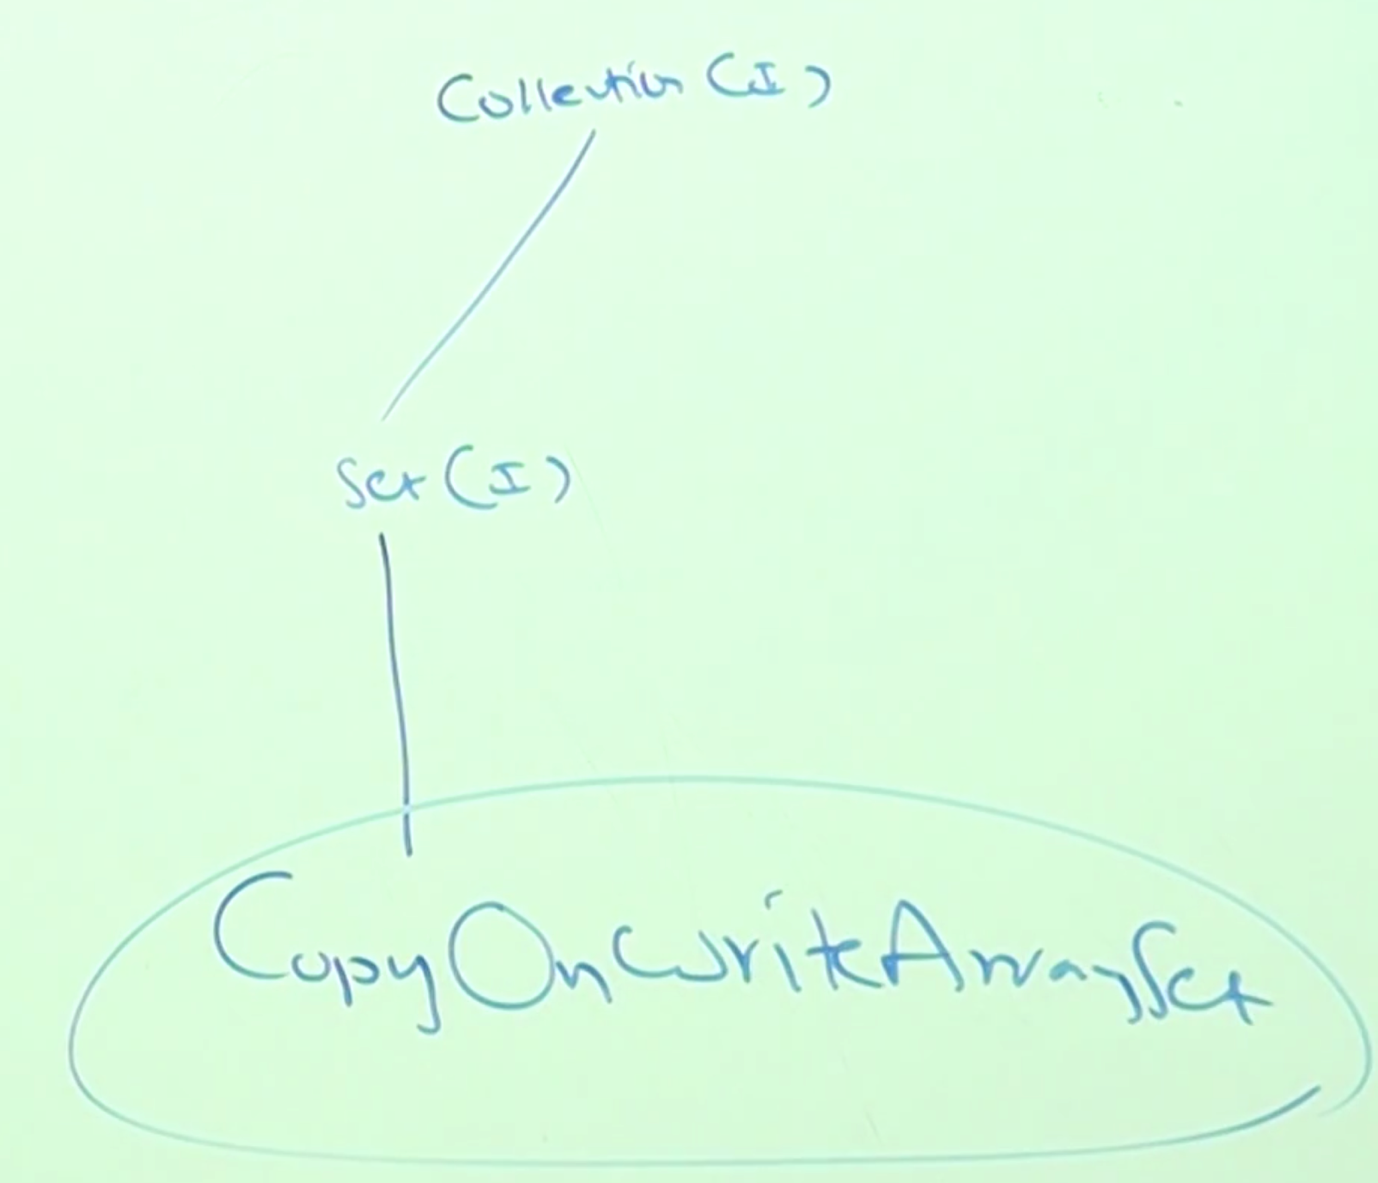 Collection (I)
Set (I)
CopyOnWriteArraySet